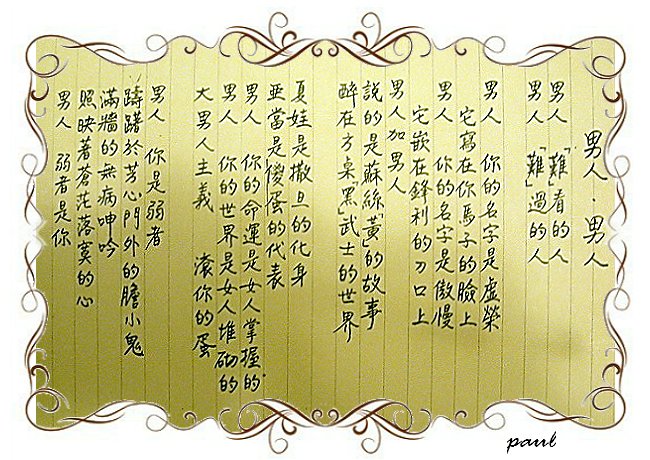 男人．男人
男人「難」看的人
男人「難」過的人
男人 你的名字是虛榮
它寫在你馬子的臉上
男人 你的名字是傲慢
它嵌在鋒利的刀口上
男人加男人
說的是蘇絲「黃」的故事
醉在方桌「黑」武士的世界
夏娃是撒旦的化身
亞當是傻蛋的代表
男人 你的命運是女人掌握的
男人 你的世界是女人堆砌的
大男人主義 滾你的蛋
男人 你是弱者
躊躇於芳心門外的膽小鬼
滿牆的無病呻吟
照映著蒼茫落寞的心
男人 弱者是你
paul